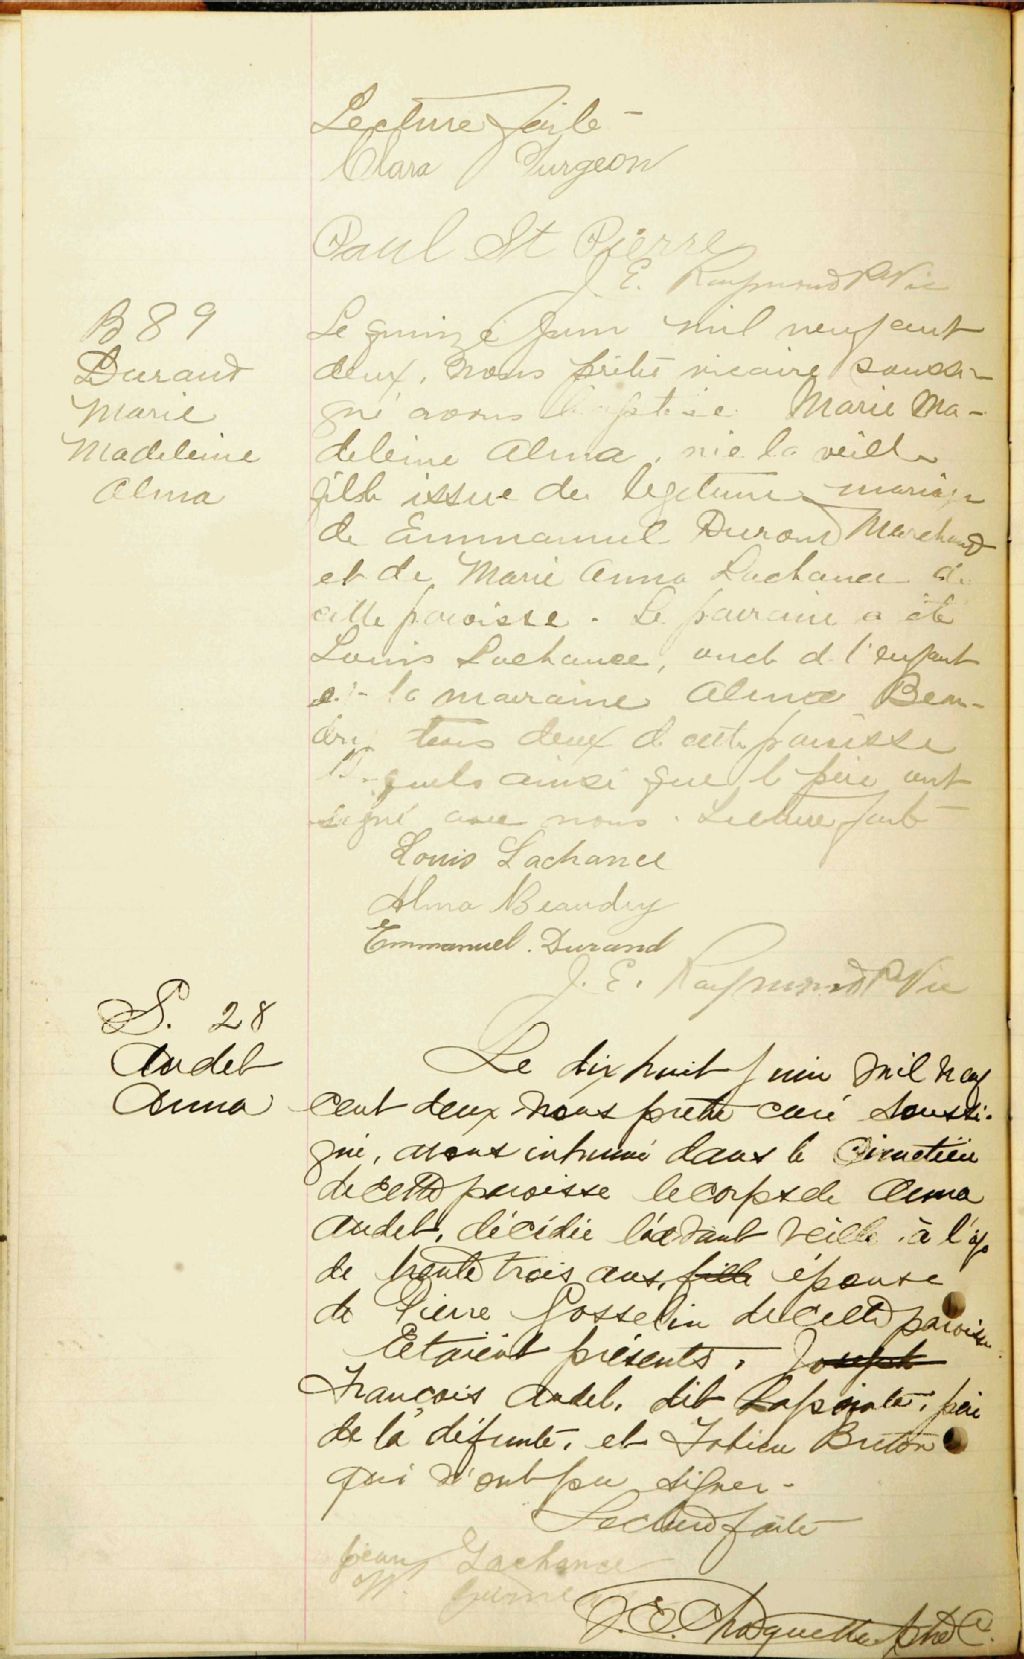 Lecture faite
Clara Turgeon
Paul St Pierre
J. E. Raymond Ptre Vic
B 89
Durand
Marie
Madeleine
Alma
Le quinze Juin mil neuf cent
deux, nous prêtre vicaire soussi-
gné avons baptisé Marie Ma-
deleine Alma, née la veille
fille issue du légitime mariage
de Emmanuel Durand Marchand
et de Marie Anna Lachance de
cette paroisse. Le parrain a été
Louis Lachance, oncle de l'enfant
et la marraine Alma Beau-
dry tous deux de cette paroisse
lesquels ainsi que le père ont
signé avec nous. Lecture faite
Louis Lachance
Alma Beaudry
Emmanuel Durand
J. E. Raymond Ptre Vic
S. 28
Audet
Anna
Le dix huit juin mil neuf
cent deux nous prêtre curé soussi-
gné, avons inhumé dans le Cimetière
de cette paroisse le corps de Anna
Audet, décédée l'avant veille, à l'âge
de trente trois ans, fille épouse
de Pierre Gosselin de cette paroisse.
Etaient présents, Joseph
François Audet, dit Lapointe, père
de la défunte, et Breton
qui n'ont pu signer.
Lecture faite
Lachance
J. E. Choquette Ptre C.